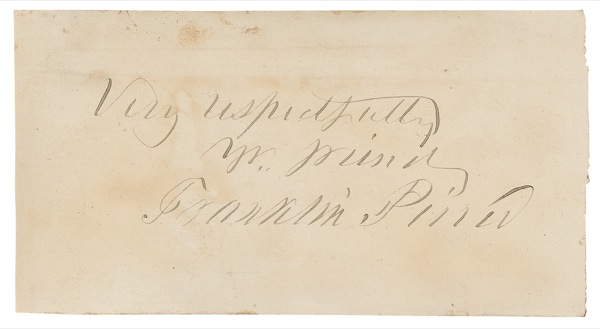 Very respectfully
Yr. friend
Franklin Pierce